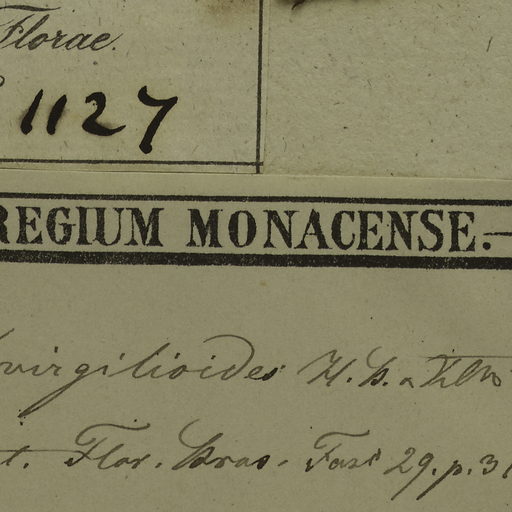 Florae.
1127
REGIUM MONACENSE.
virgilioides H. B.
t. Flor. Bras. Fasc 29. p. 31